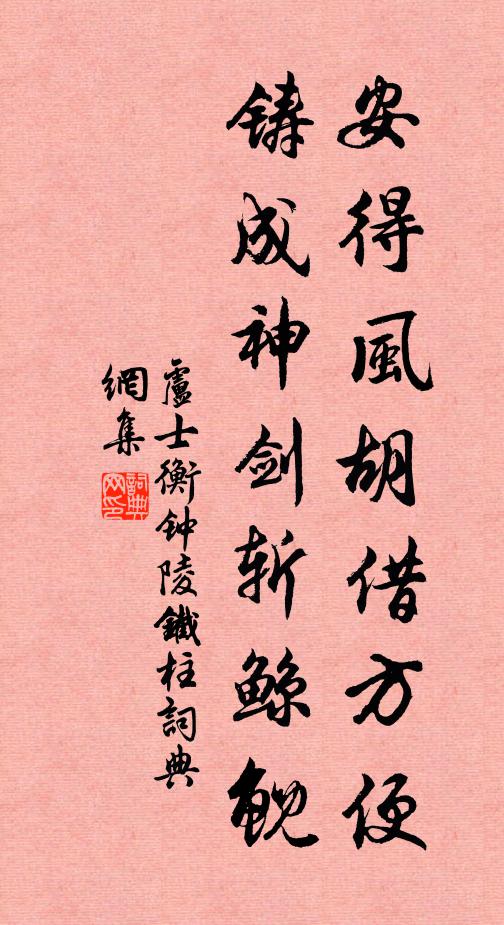 安得風胡借方便
鑄成神剑斩鲸鲵
盧士衡钟陵鐵柱詞典
網集
詞典网印